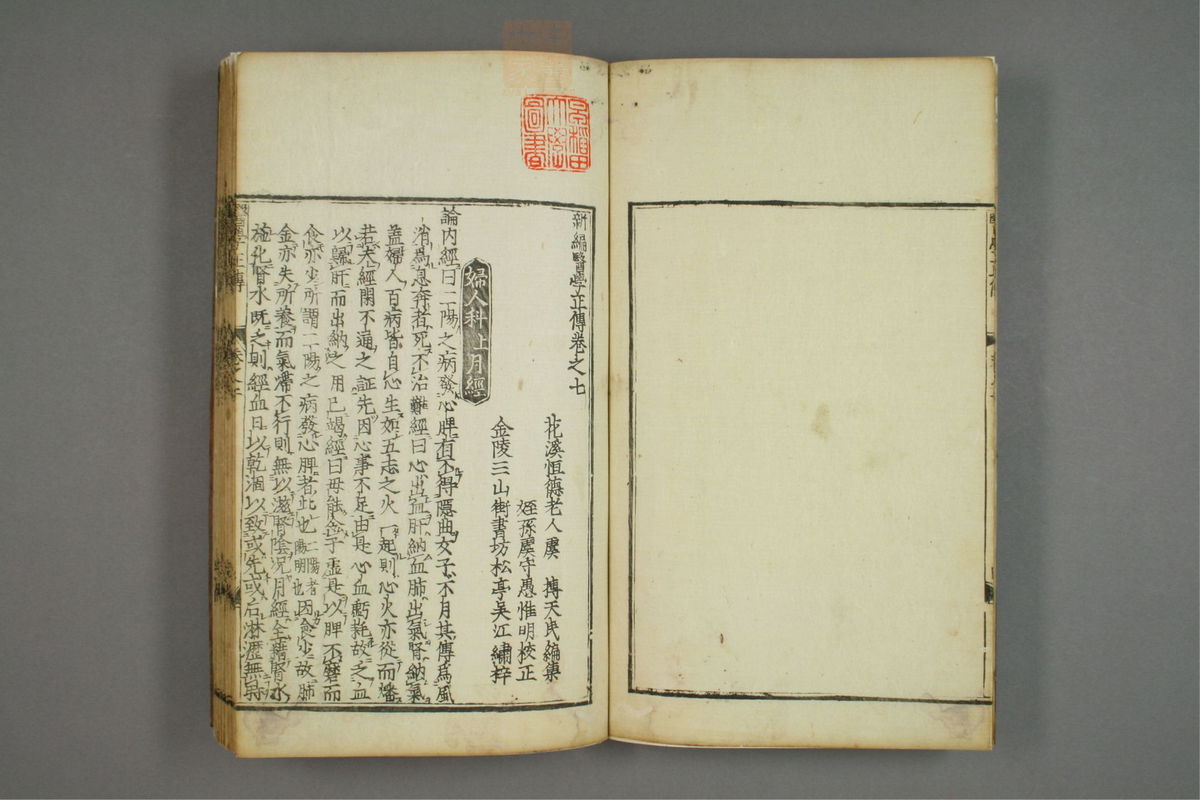 新編醫學正傳卷之七
花溪恒德老人虞 摶天民編集
姪孫虞守愚惟明校正
金陵三山街書坊松亭吳江繡梓
婦人科上月經
論内經曰二陽之病發心脾有不得隱曲女子不月其傳爲風
消爲息奔者死不治難經曰心出血肝納血肺出氣腎納氣
蓋婦人百病皆自心生如五志之火一起則心火亦從而燔
若夫經閉不通之証先因心事不足由是心血虧耗故乏血
以歸肝而出納之用已竭經曰毋能令子虛是以脾不磨而
食亦少所謂二陽之病發心脾者此也二陽者陽明也因食少故肺
金亦失所養而氣滯不行則無以滋腎陰況月經全藉腎水
施化腎水既乏則經血日以乾涸以致或先或后淋瀝無時
早稲田大學圖書